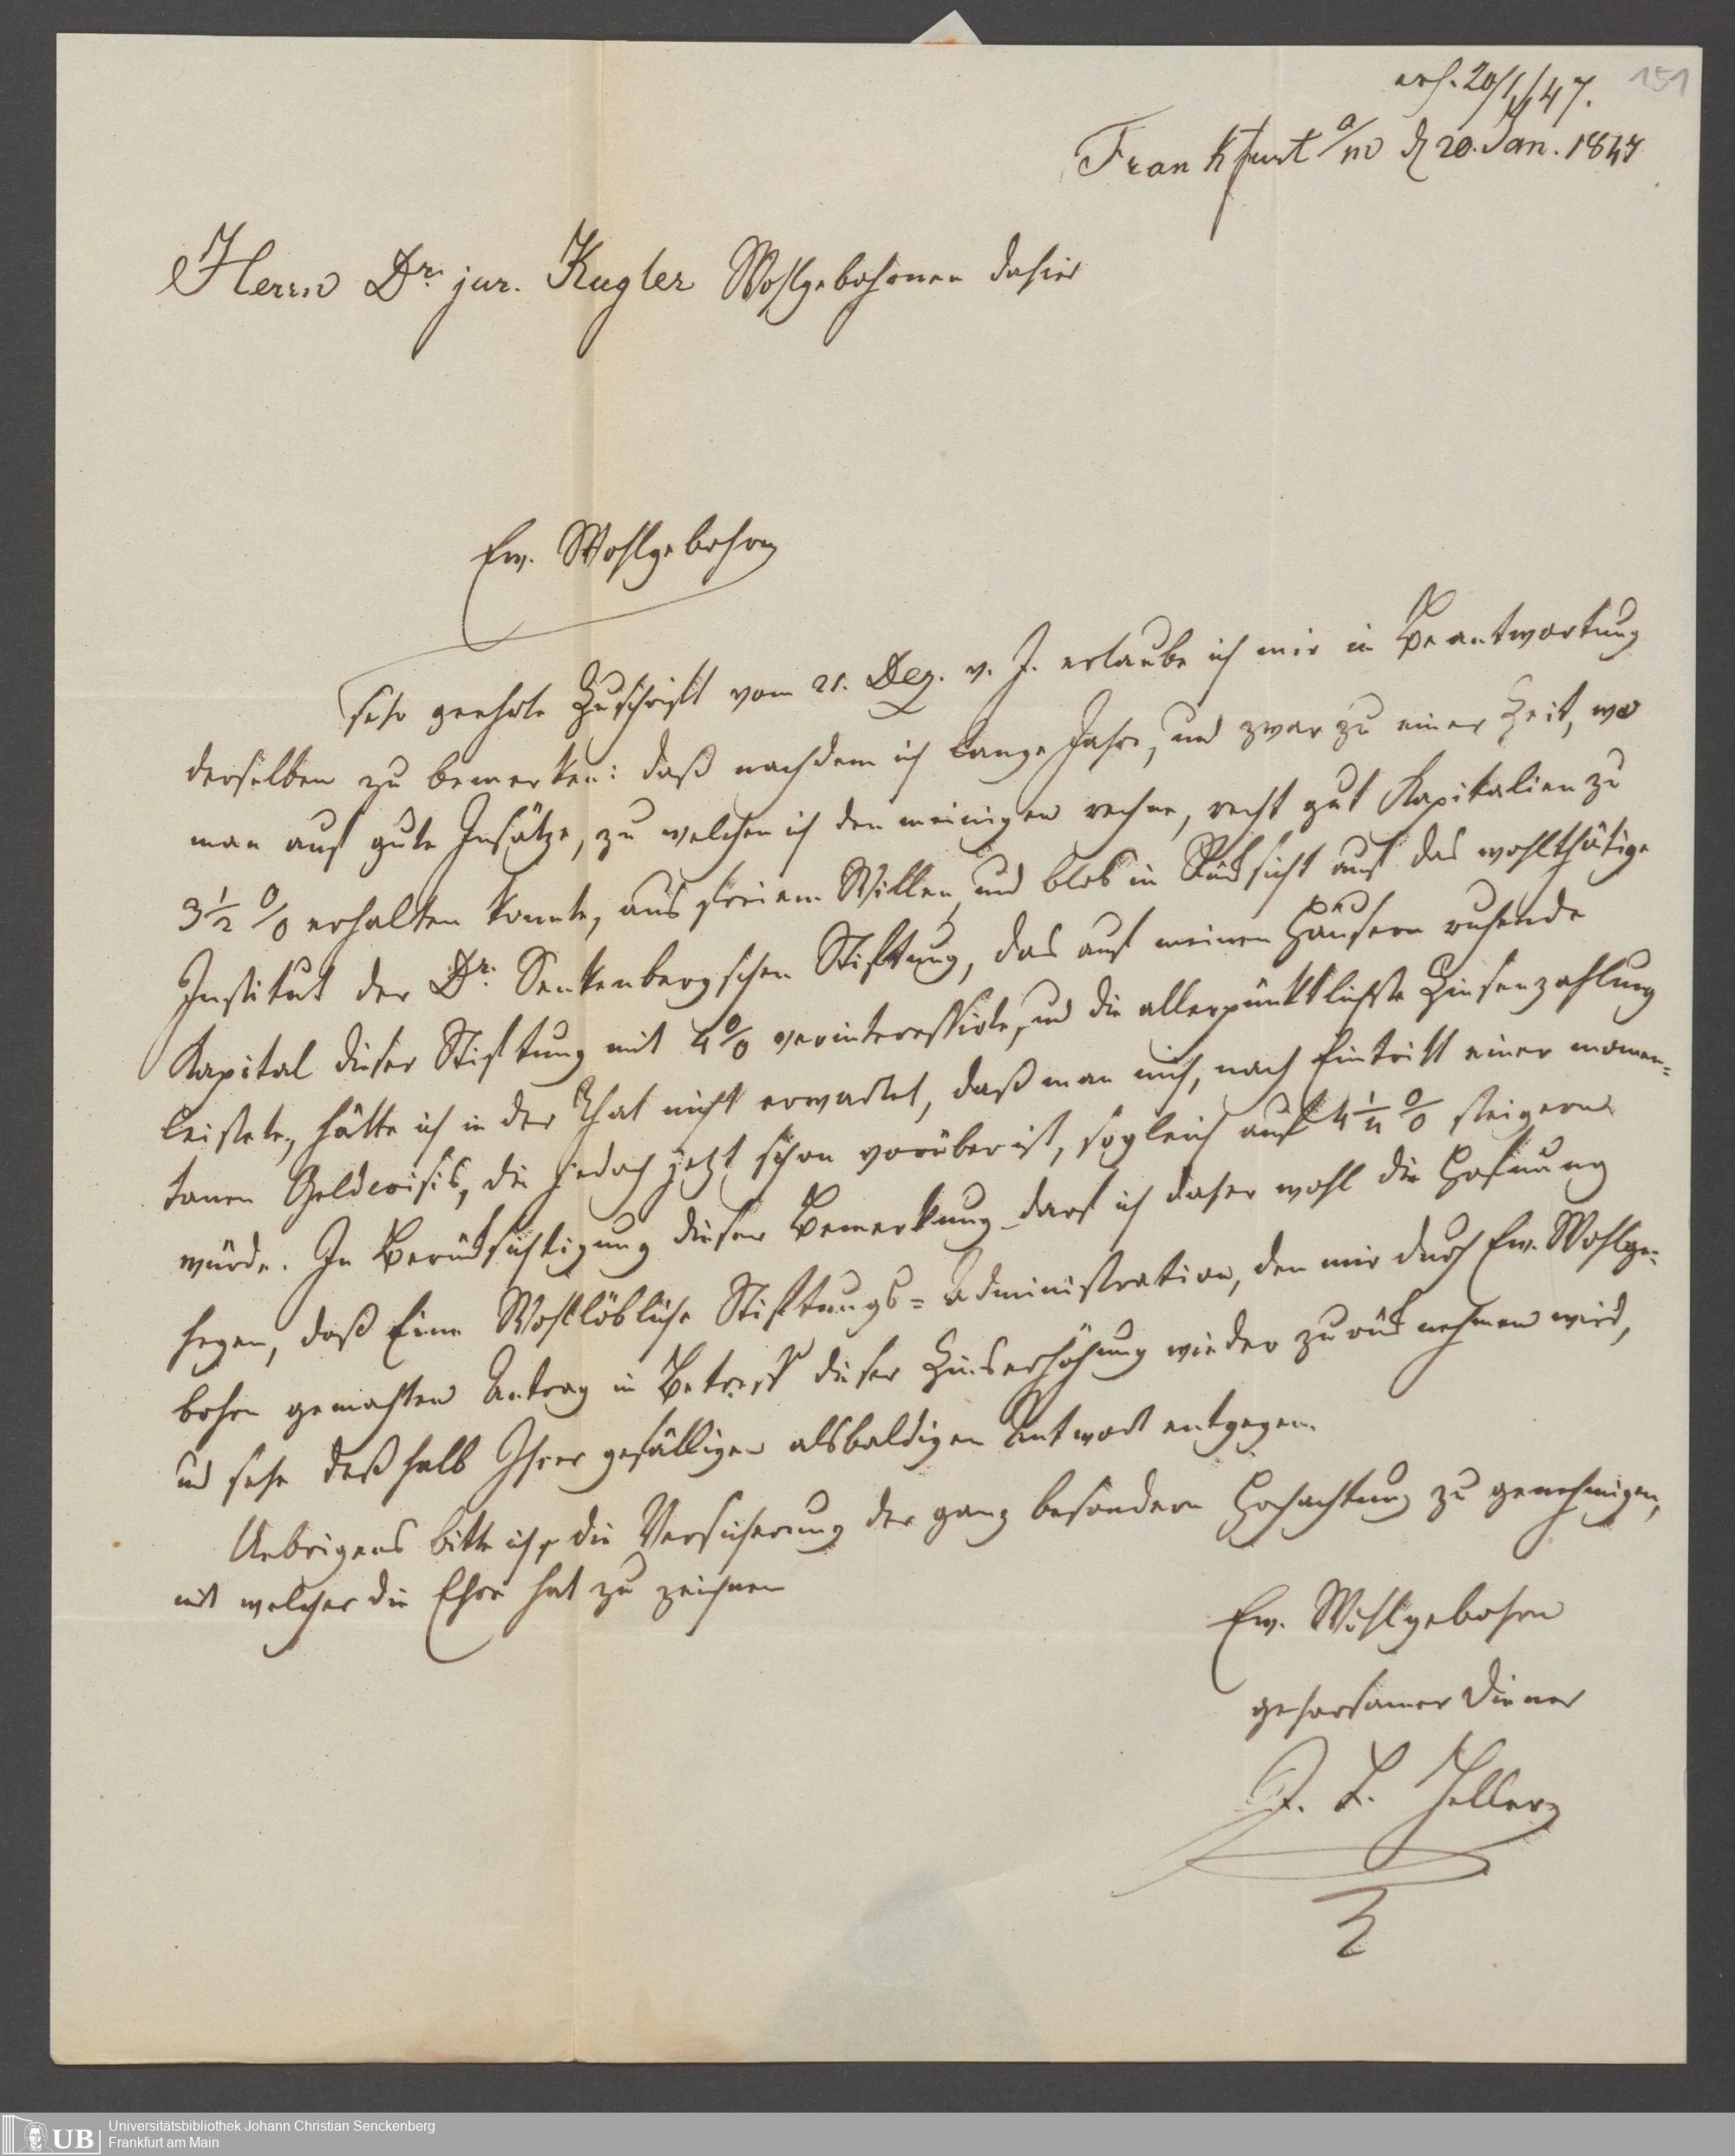 erh. 20/1/47.
151
Frankfurt a/m d 20. Jan. 1847
Herrn Dr. jur. Kugler Wohlgebohrnen dahier
Ew. Wohlgebohrn
sehr geehrte Zuschrift vom 21. Dez. v. J. erlaube ich mir in Beantwortung
derselben zu bemerken: daß nachdem ich lange Jahre, und zwar zu einer Zeit, wo
man auf gute Insätze, zu welchen ich den meinigen rechne, recht gut Kapitalien zu
3 1/2 % erhalten konnte, aus freiem Willen, und blos in Rücksicht auf das wohlthätige
Institut der Dr. Senkenbergschen Stiftung, das auf meinen Häusern ruhende
Kapital dieser Stiftung mit 4 % verinteressirte, und die allerpünktlichste Zinsenzahlung
leistete, hätte ich in der That nicht erwartet, daß man mich, nach Eintritt einer momen=
tanen Geldcrisis, die jedoch jetzt schon vorüber ist, sogleich auf 4 1/2 % steigern
würde. In Berücksichtigung dieser Bemerkung darf ich daher wohl die Hofnung
hegen, daß Eine Wohllöbliche Stiftungs=Administration, den mir durch Ew. Wohlge=
bohrn gemachten Antrag in Betreff dieser Zinserhöhung wieder zurück nehmen wird,
und sehe deßhalb Ihrer gefälligen alsbaldigen Antwort entgegen.
Uebrigens bitte ich, die Versicherung der ganz besondern Hochachtung zu genehmigen,
mit welcher die Ehre hat zu zeichnen
Ew. Wohlgebohrn
gehorsamer Diener
J. L. Heller
UB
Universitätsbibliothek Johann Christian Senckenberg
Frankfurt am Main